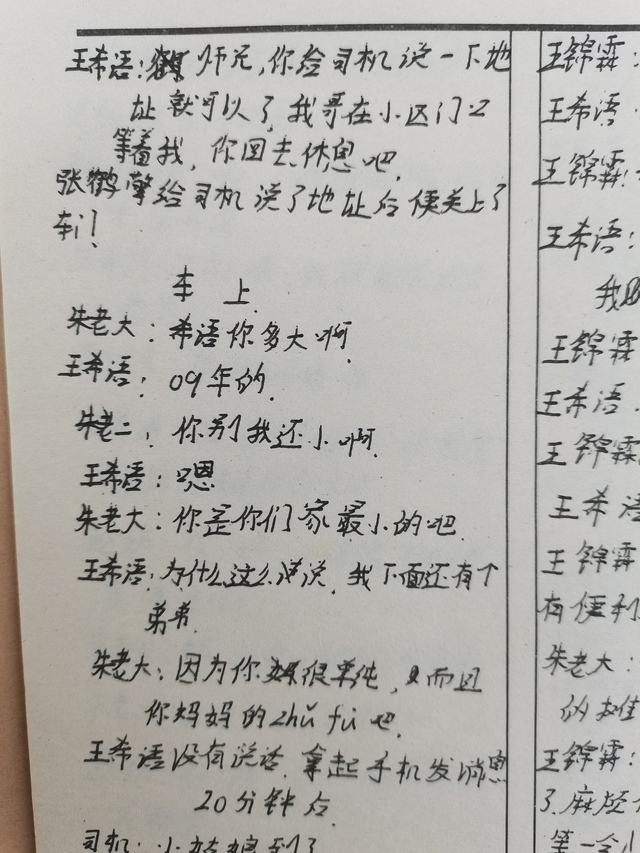 王希语:师兄,你给司机说一下地
址就可以了,我哥在小区门口
等着我,你回去休息吧,
张鹤擎给司机说了地址后便关上了
车门
车上
朱老大:希语你多大啊,
王希语:09年的.
朱老二,你别我还小啊,
王希语:嗯
朱老大:你是你们家最小的吧
王希语:为什么这么说,我下面还有个
弟弟.
朱老大:因为你很单纯,而且
你妈妈的zhǔ fù吧.
王希语没有说话,拿起手机发消息
20分钟后
司机:小姑娘到了
王锦霖:
王希语:
王锦霖:
王希语:
我
王锦霖
王希语.
王锦霖
王希语
王锦霖
有便利
朱老大:
的
王锦霖:
了.麻烦
第一